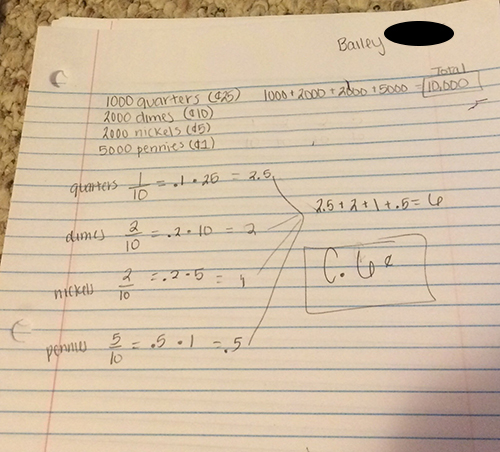 Bailey
Total
1000 quarters (¢25) 1000 + 2000 + 2000 + 5000 = 10,000
2000 dimes (¢10)
2000 nickels (¢5)
5000 pennies (¢1)
quarters 1/10 = .1 • 25 = 2.5
2.5 + 2 + 1 + .5 = 6
dimes 2/10 = .2 • 10 = 2
C. 6¢
nickels 2/10 = .2 • 5 = 1
pennies 5/10 = .5 • 1 = .5